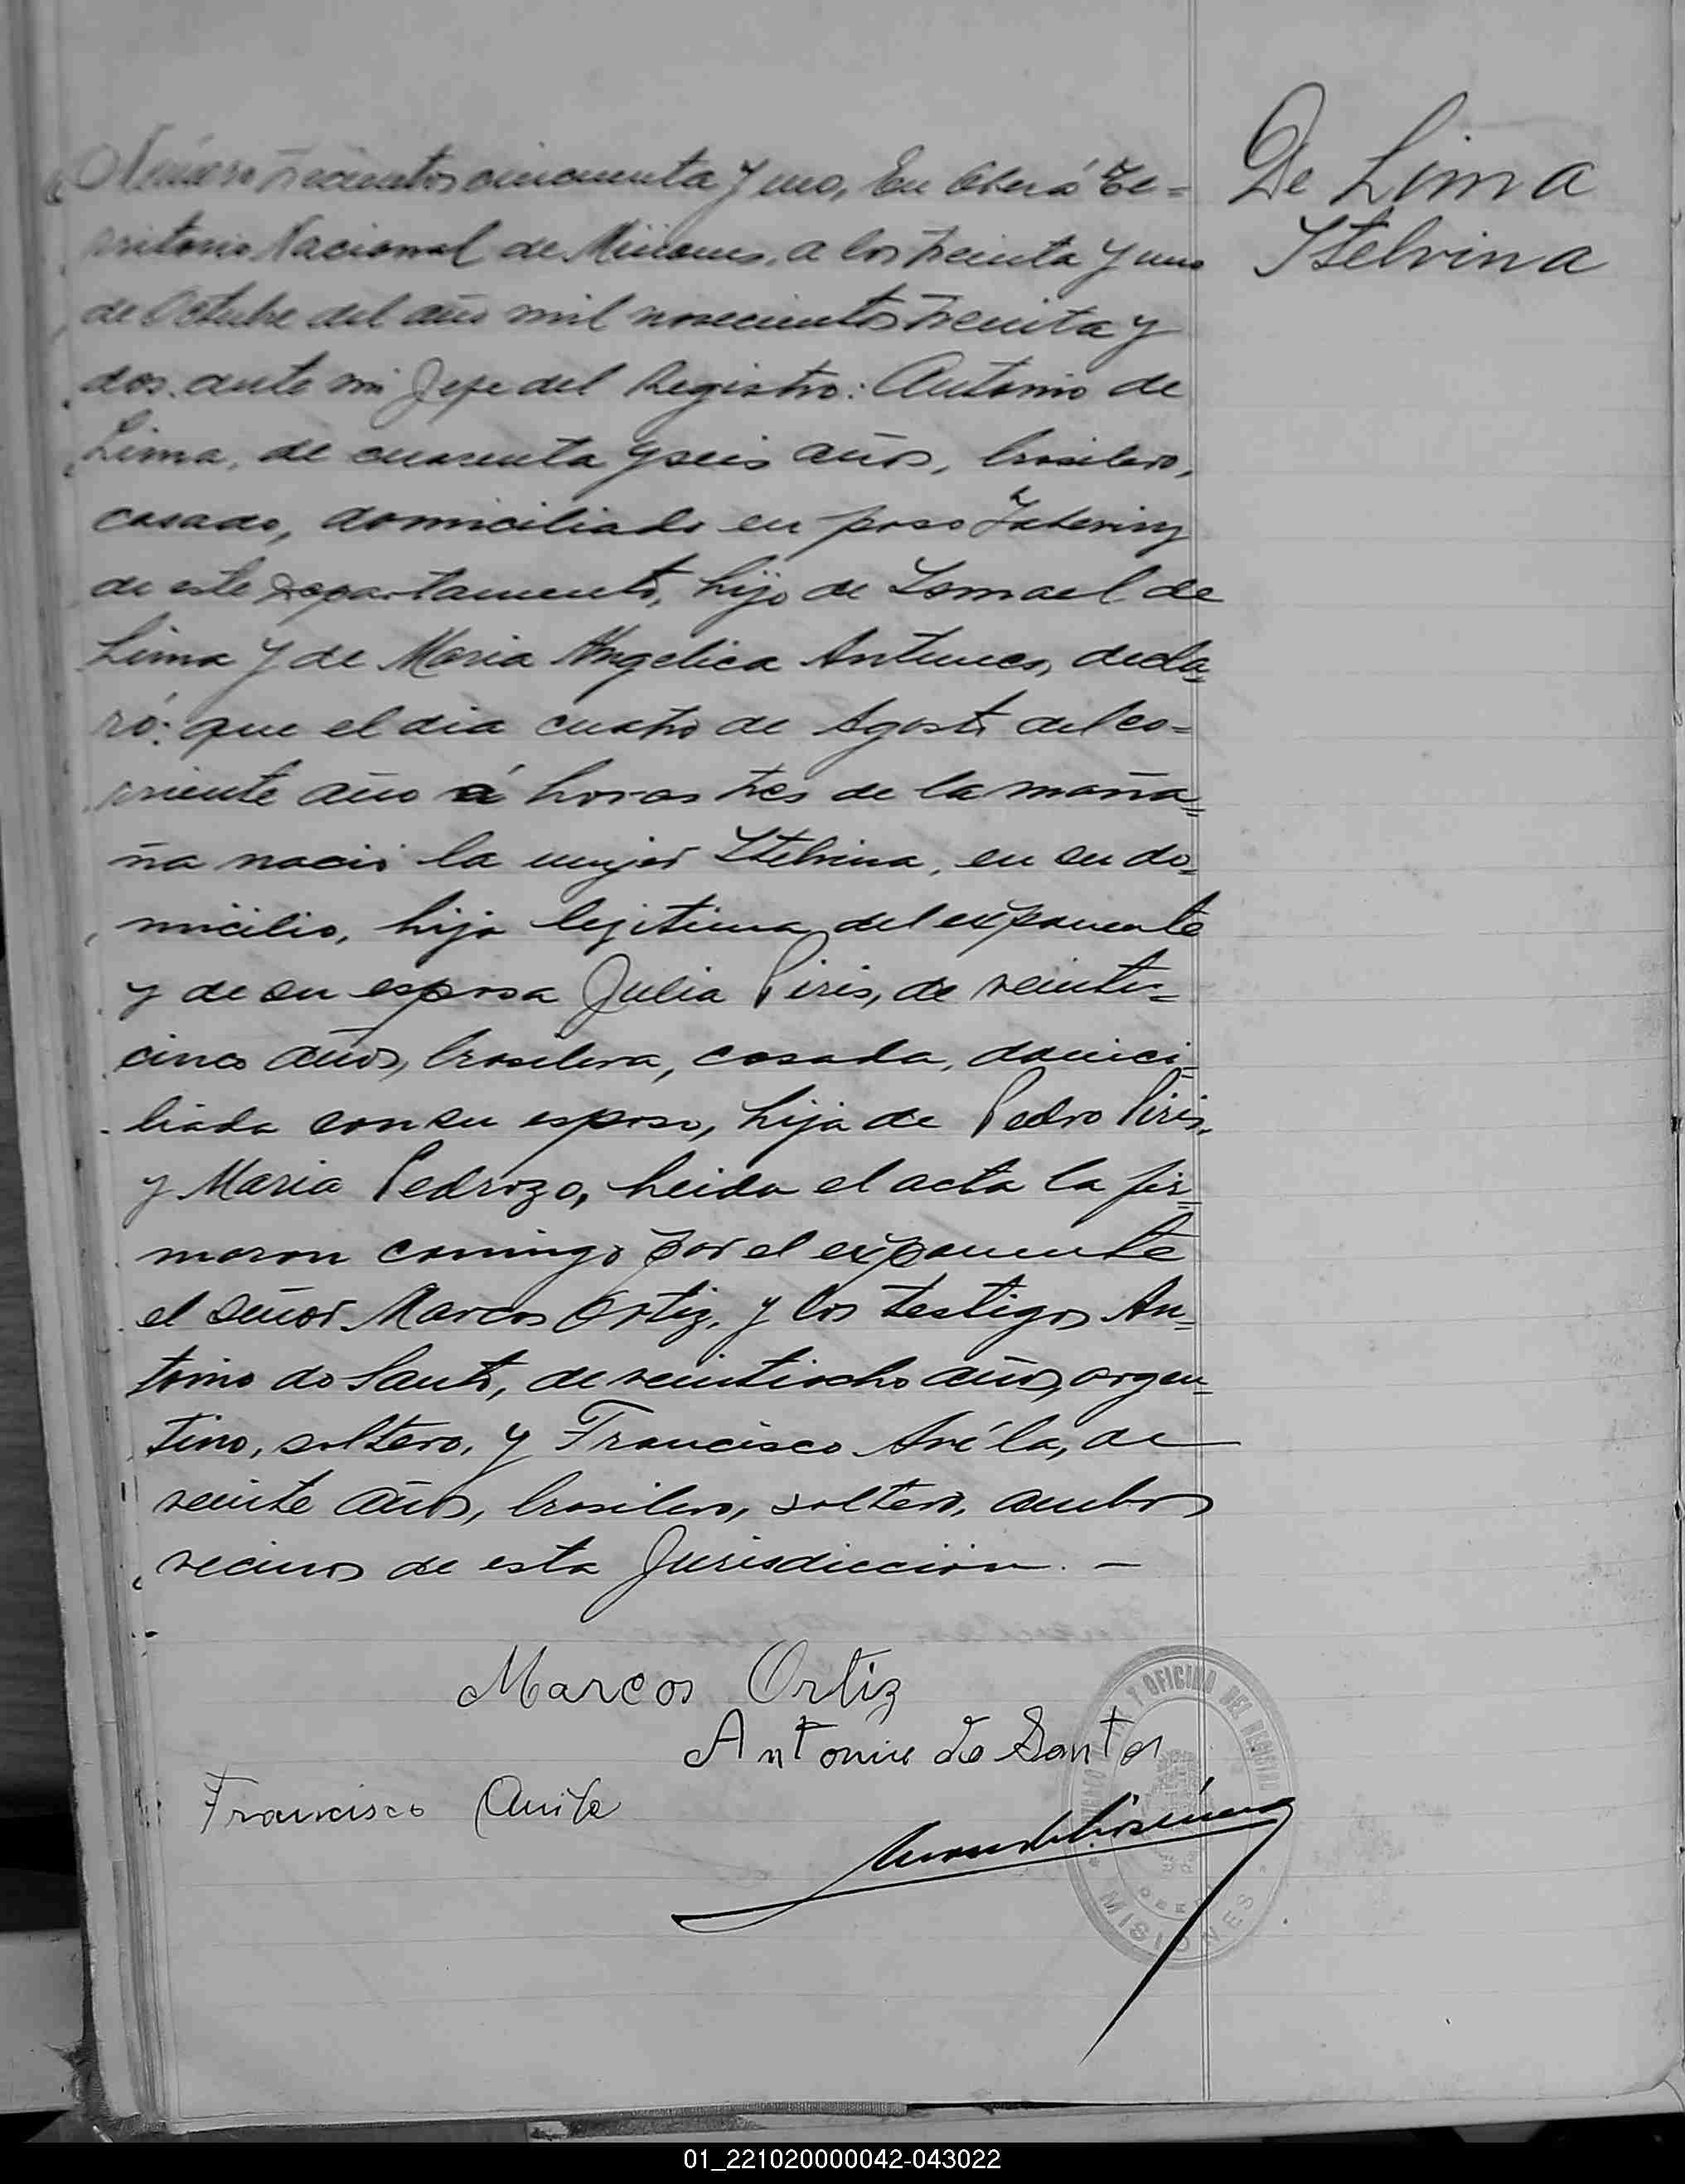 De Lima
Itelvina
Número trecientos cincuenta y uno, En Oberá Te=
rritorio Nacional de Misiones, a los treinta y uno
de Octubre del año mil novecientos treinta y
dos. ante mi Jefe del Registro: Antonio de
Lima, de cuarenta y seis años, brasilero,
casado, domiciliado en paso
de este Departamento, hijo de Ismael de
Lima y de Maria Angelica Antunes, decla=
ró: que el dia cuatro de Agosto del co=
rriente año á horas tres de la maña=
ña nació la mujer Itelvina, en su do=
micilio, hija legitima del exponente
y de su esposa Julia Piris, de veinti=
cinco años, brasilera, casada, domici=
liada con su esposo, hija de Pedro Piris,
y Maria Pedrozo, leida el acta la fir=
maron comingo por el exponente
el señor Marcos Ortiz, y los testigos An=
tonio do Santo, de veintiocho años, argen=
tino, soltero, y Francisco Avéla, de
veinte años, brasilero, soltero, ambos
vecinos de esta Jurisdiccion. —
Marcos Ortiz
Antonio do Santos
Francisco Avila
Y OFICINA DEL REGISTRO
MISIONES
01_221020000042-043022